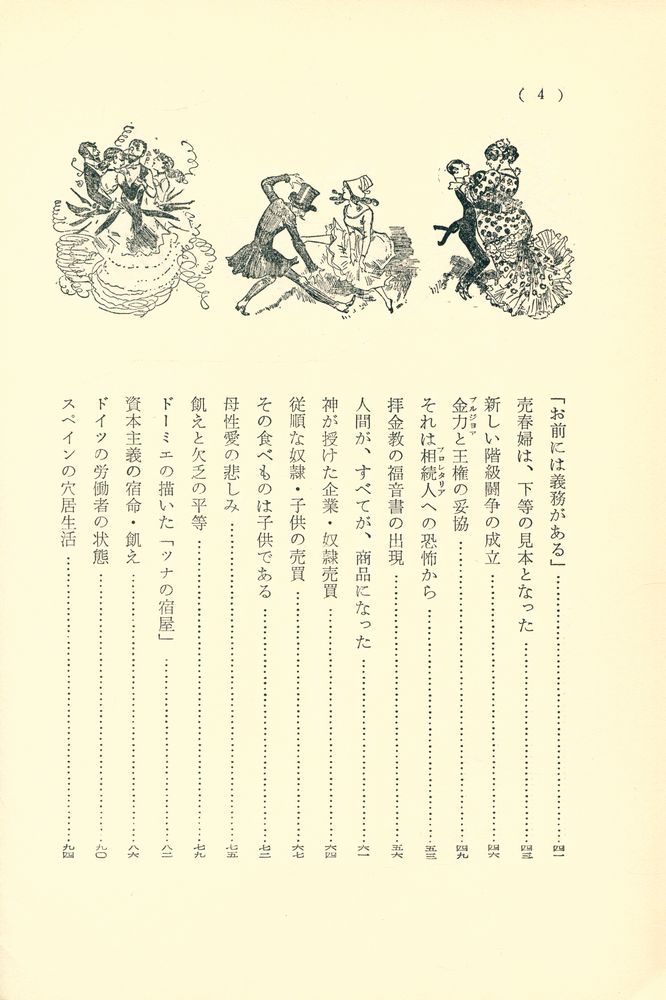 ( 4 )
「お前には義務がある」……四一
売春婦は、下等の見本となった……四三
新しい階級闘争の成立……四六
金力と王権の妥協……四九
ブルジョア
それは相続人への恐怖から……五三
プロレタリア
拝金教の福音書の出現……五六
人間が、すべてが、商品になった……六一
神が授けた企業・奴隷売買……六四
従順な奴隷・子供の売買……六七
その食べものは子供である……七二
母性愛の悲しみ……七五
飢えと欠乏の平等……七九
ドーミエの描いた「ツナの宿屋」……八二
資本主義の宿命・飢え……八六
ドイツの労働者の状態……九〇
スペインの穴居生活……九四